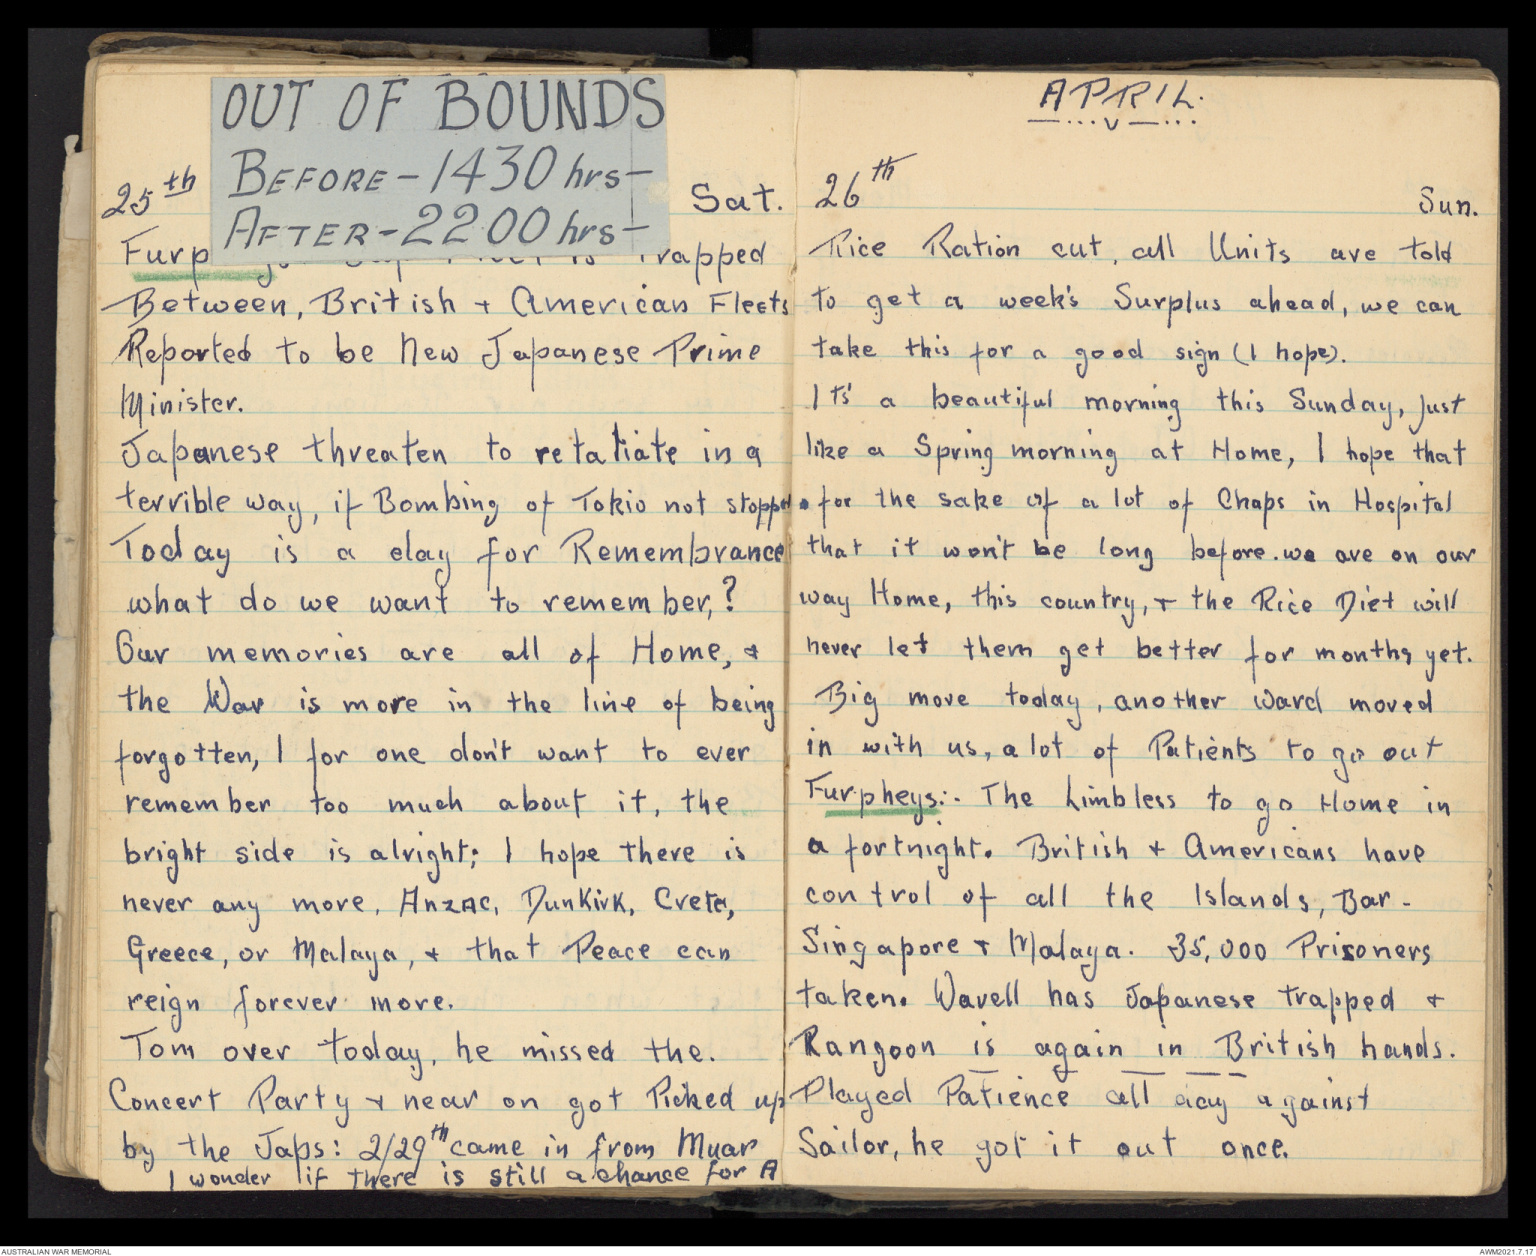 OUT OF BOUNDS
BEFORE - 1430 hrs -
AFTER - 2200 hrs -
25th Sat.
Furp trapped
Between, British + American Fleets
Reported to be New Japanese Prime
Minister.
Japanese threaten to retatiate in a
terrible way, if Bombing of Tokio not stopped.
Today is a day for Remembrance
what do we want to remember,?
Our memories are all of Home, &
the War is more in the line of being
forgotten, I for one don't want to ever
remember too much about it, the
bright side is alright; I hope there is
never any more, ANZAC, DunKirk, Crete,
Greece, or Malaya, + that Peace can
reign forever more.
Tom over today, he missed the.
Concert Party + near on got Picked up
by the Japs: 2/29th came in from Muar
I wonder if there is still a chance for A
APRIL.
26th Sun.
Rice Ration cut, all Units are told
to get a week's Surplus ahead, we can
take this for a good sign (I hope).
Its' a beautiful morning this Sunday, Just
like a Spring morning at Home, I hope that
for the sake of a lot of Chaps in Hospital
that it won't be long before we are on our
way Home, this country, + the Rice Diet will
never let them get better for months yet.
Big move today, another Ward moved
in with us, a lot of Patients to go out
Furpheys:. The Limbless to go Home in
a fortnight. British + Americans have
control of all the Islands, Bar-
Singapore + Malaya. 35,000 Prisoners
taken. Wavell has Japanese trapped +
Rangoon is again in British hands.
Played Patience all day against
Sailor, he got it out once.
AUSTRALIAN WAR MEMORIAL
AWM2021.7.17